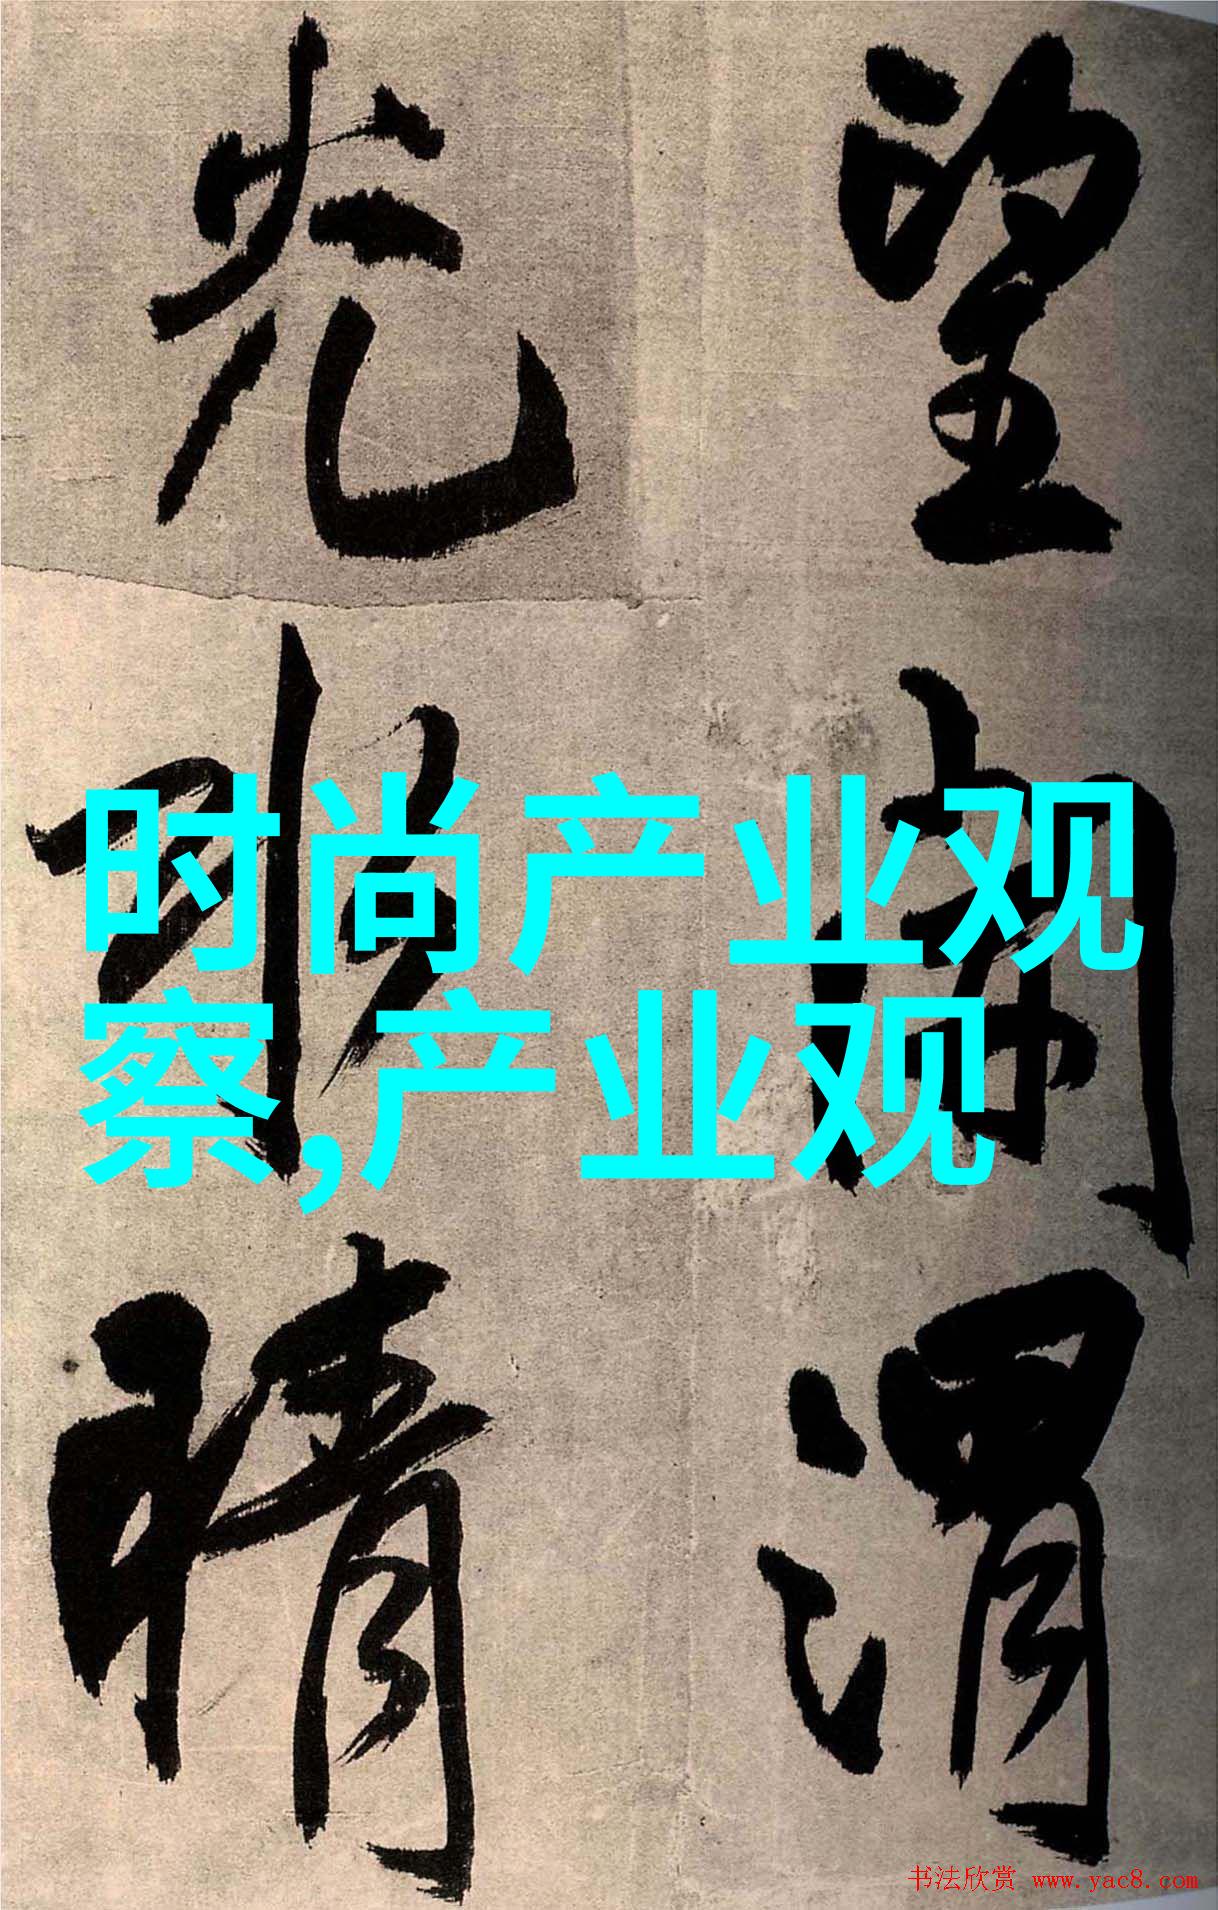 望渭
光晴
时尚产业观
察,产业观
书法欣赏 www.yac8.com